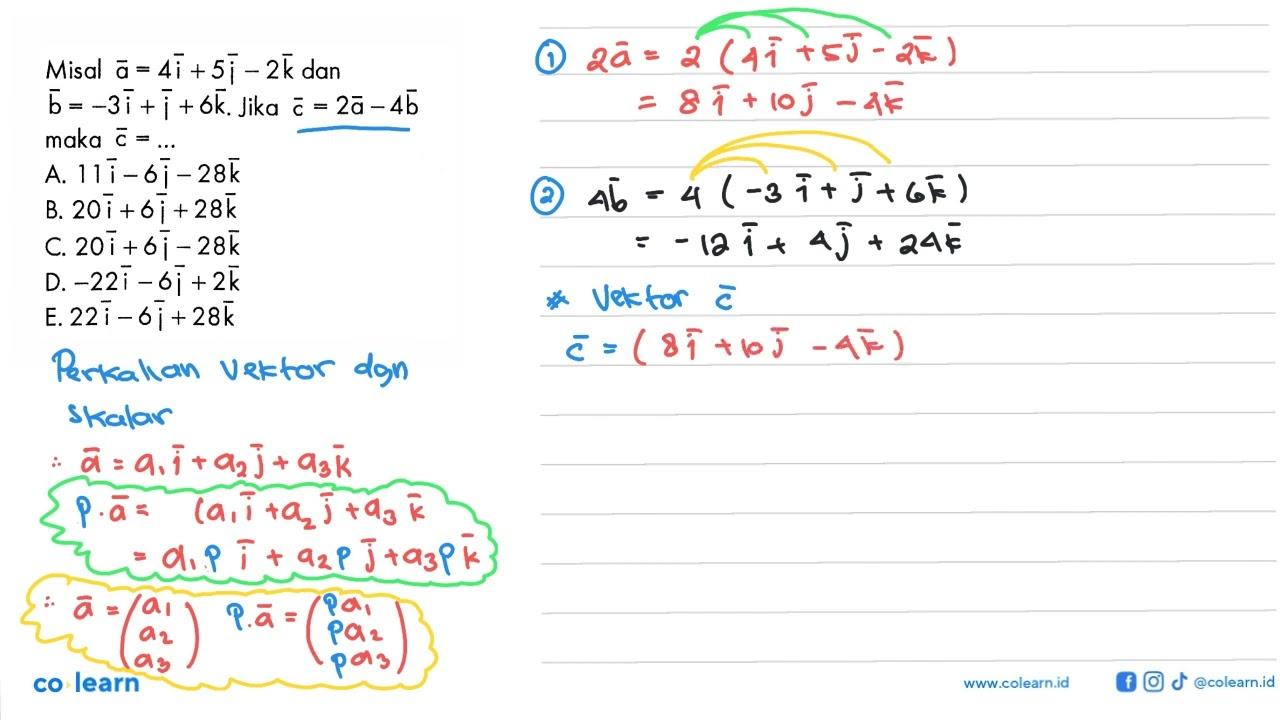 Misal a̅ = 4i̅ + 5j̅ − 2k̅ dan
b̅ = −3i̅ + j̅ + 6k̅. Jika c̅ = 2a̅ − 4b̅
maka c̅ = ...
A. 11i̅ − 6j̅ − 28k̅
B. 20i̅ + 6j̅ + 28k̅
C. 20i̅ + 6j̅ − 28k̅
D. −22i̅ − 6j̅ + 2k̅
E. 22i̅ − 6j̅ + 28k̅
Perkalian vektor dgn
skalar
∴ a̅ = a₁i̅ + a₂j̅ + a₃k̅
p·a̅ = (a₁i̅ + a₂j̅ + a₃k̅
= a₁p i̅ + a₂p j̅ + a₃p k̅
∴ a̅ = (a₁ p·a̅ = (pa₁
a₂) pa₂)
a₃ pa₃
co learn
① 2a̅ = 2 (4i̅ + 5j̅ − 2k̅)
= 8i̅ + 10j̅ − 4k̅
② 4b̅ = 4 (−3i̅ + j̅ + 6k̅)
= −12i̅ + 4j̅ + 24k̅
* Vektor c̅
c̅ = (8i̅ + 10j̅ − 4k̅)
www.colearn.id @colearn.id